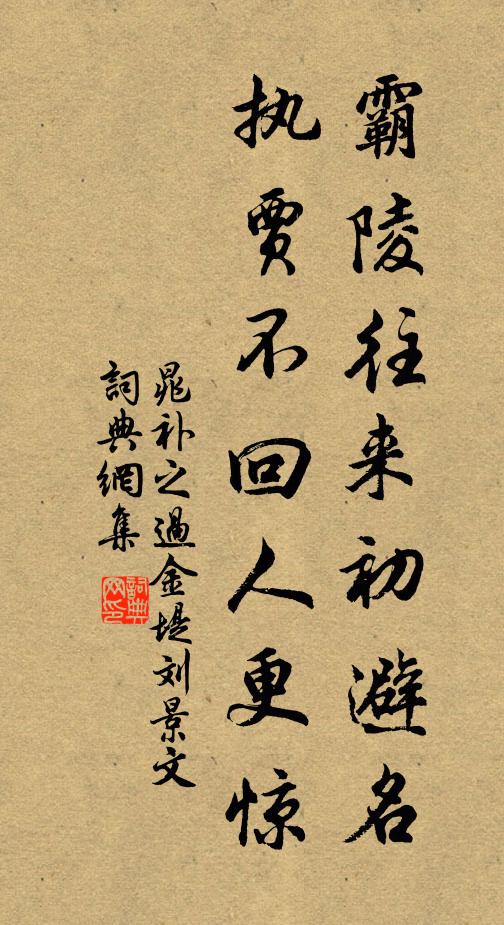 霸陵往来初避名
执贾不回人更惊
晁补之過金堤刘景文
詞典網集
詞典网印